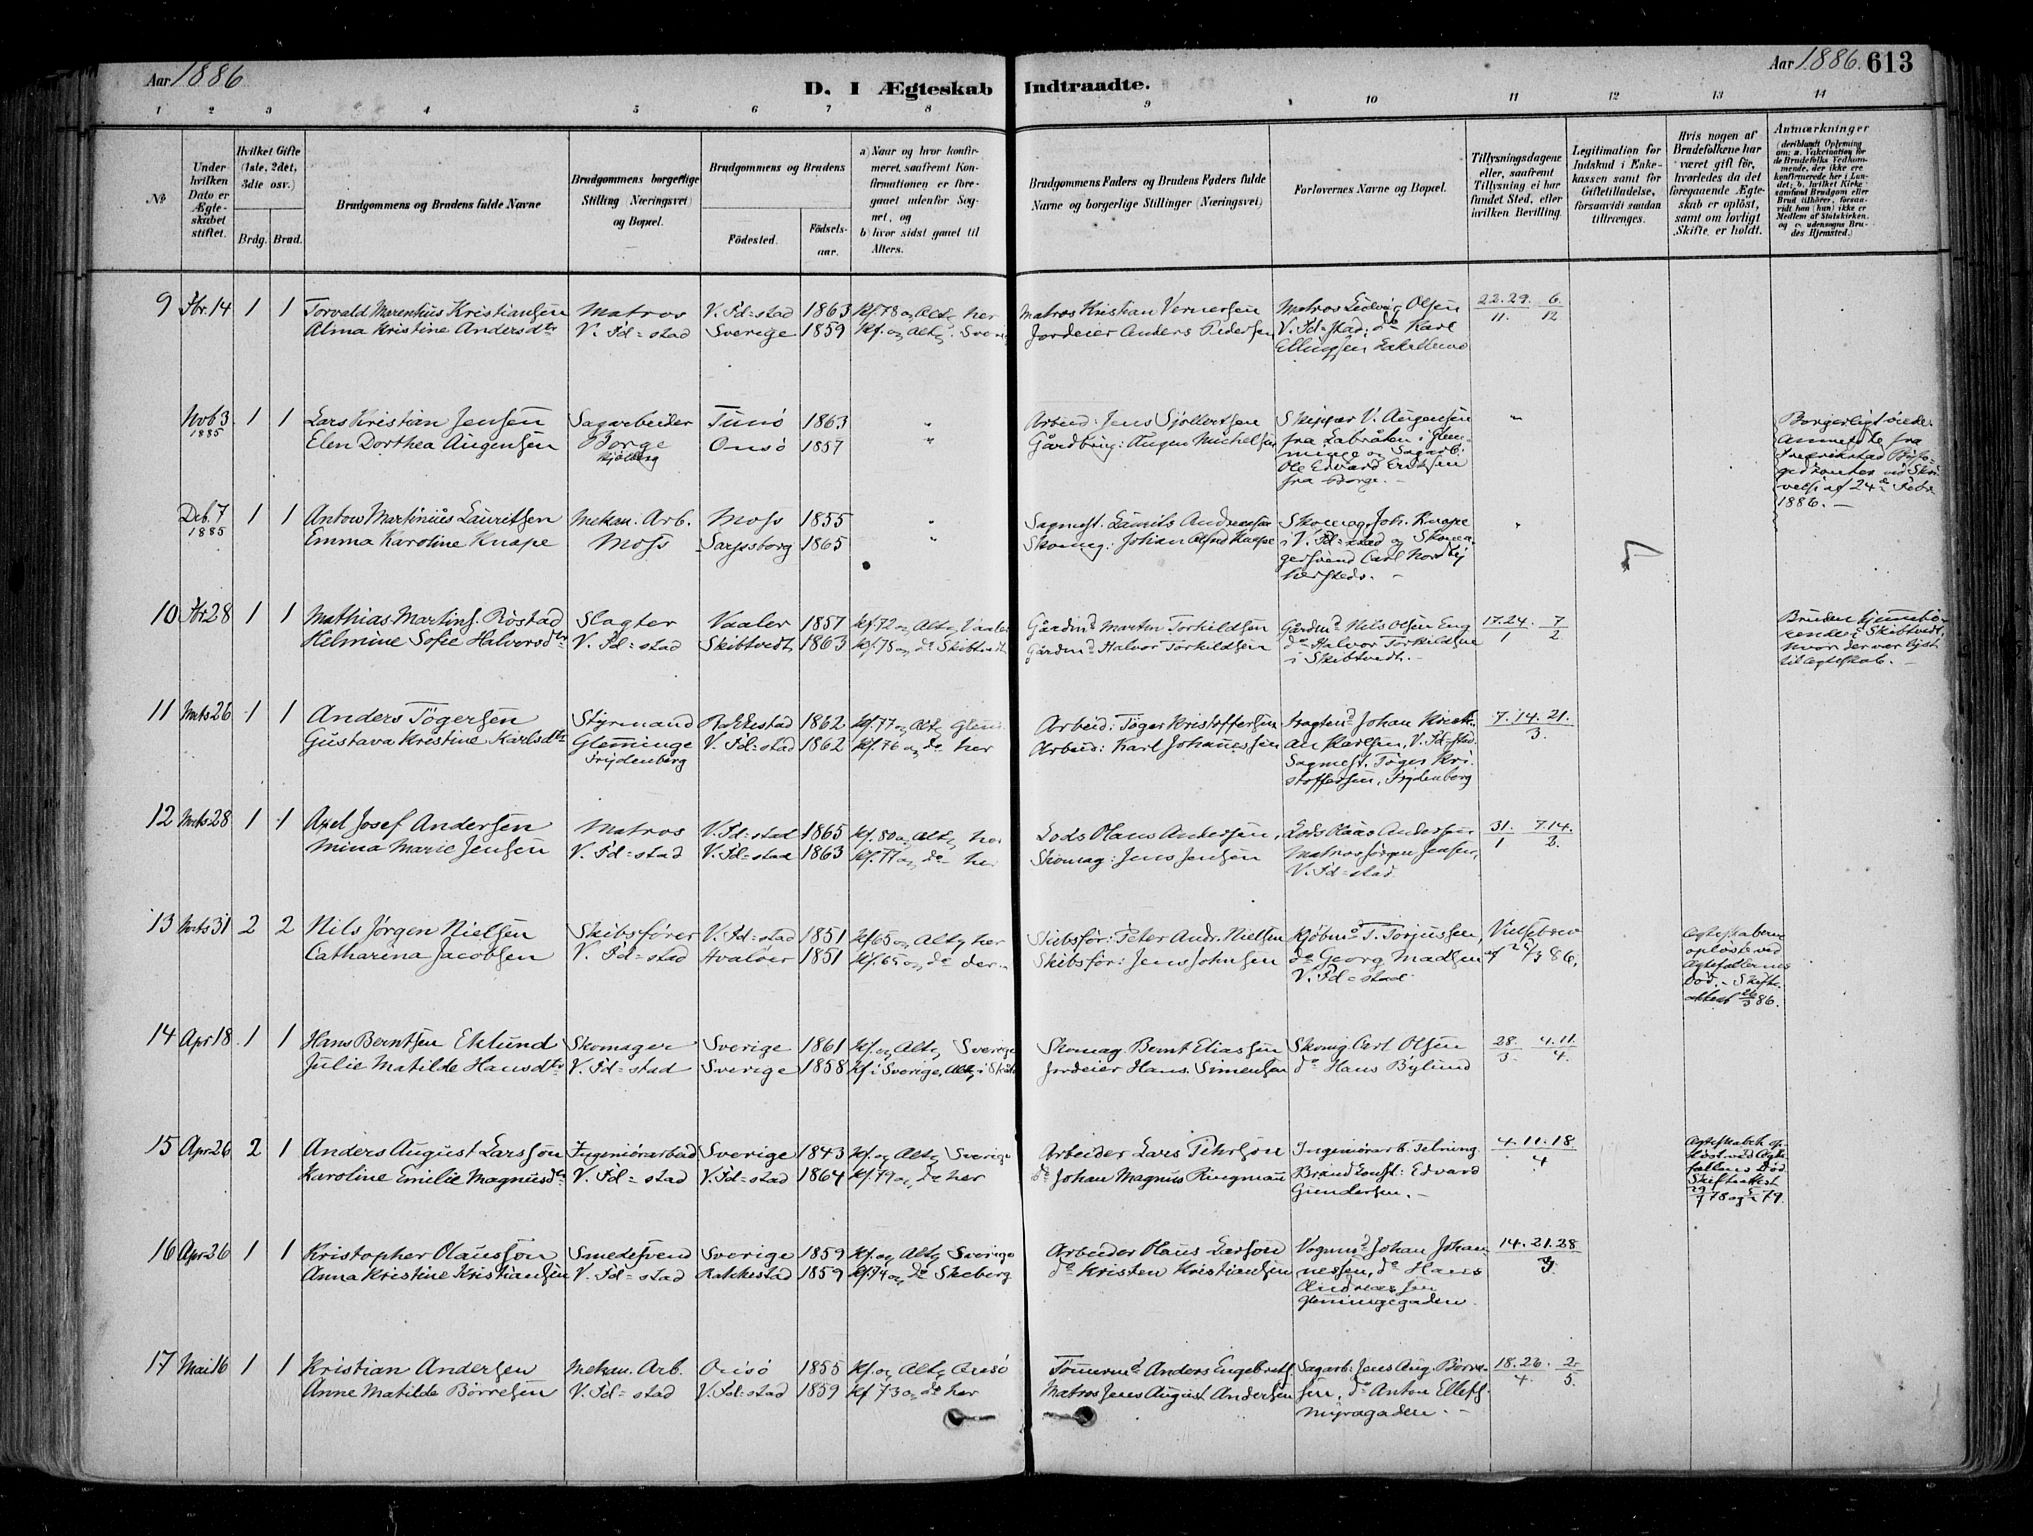 Aar 1886
D. I Ægteskab Indtraadte.
Aar 1886. 613
1 2 3 4 5 6 7 8 9 10 11 12 13 14
№
Under hvilken Dato er Ægteskabet stiftet.
Hvilket Gifte (1ste, 2det, 3die osv.)
Brdg. Brud.
Brudgommens og Brudens fulde Navne
Brudgommens borgerlige Stilling (Næringsvei) og Bopæl.
Brudgommens og Brudens
Fødested. Fødselsaar.
a) Naar og hvor konfirmeret, saafremt Konfirmationen er foregaaet udenfor Sognet, og
b) hvor sidst gaaet til Alters.
Brudgommens Faders og Brudens Faders fulde Navne og borgerlige Stillinger (Næringsvei)
Forlovernes Navne og Bopæl.
Tillysningsdagene eller, saafremt Tillysning ei har fundet Sted, efter hvilken Bevilling.
Legitimation for Indskud i Enkekassen samt for Giftetilladelse, forsaavidt saadan tiltrænges.
Hvis nogen af Brudefolkene har været gift før, hvorledes da det foregaaende Ægteskab er opløst, samt om lovligt Skifte er holdt.
Anmærkninger (deriblandt Oplysning om: a. Vakcination for de Brudefolks Vedkommende, der ikke ere konfirmerede her i Landet; b. hvilket Kirkesamfund Brudgom eller Brud tilhører, forsaavidt han (hun) ikke er Medlem af Statskirken, og c. udensogns Brudes Hjemsted.)
9 Fbr. 14 1 1 Torvald Marentius Kristiansen Matros V. Fd=stad 1863 Kf. 78 og Altg her Matros Kristian Vernersen Matros Ludvig Olsen 22. 29. 6
Alma Kristine Andersdtr V. Fd=stad Sverige 1859 Kf. og Altg. Sverig Jordeier Anders Pedersen V. Fd=stad: do Karl 11. 12
Ellingsen
Novb 3 1 1 Lars Kristian Jensen Sagarbeider Tunø 1863 " Arbeid: Jens Sjøllertsen Skipper V. Augensen " Borgerligt viede.
1885 Elen Dorthea Augensen Borge Onsø 1857 " Gårdbrug: Augen Michelsen fra Labråten i Glem- Anmeldte fra
Kjølberg minge og Sagarb. Fredrikstad
Ole Edvard Eriksen ved Skri-
fra Borge. - velse af 24de Febr.
1886. -
Deb. 7 1 1 Anton Martinius Lauritsen Mekan. Arb. Moss 1855 " Sagmest. Laurits Andreassen Skomag. Joh. Knape "
1885 Emma Karoline Knape Moss Sarpsborg 1865 " Skomag: Johan Alfred Knape i V. Fd=stad og Skoma-
gersvend Carl Nordby
hersteds. -
10 Fbr 28 1 1 Mathias Martins. Røstad Slagter Vaaler 1857 Kf. 72 og Altg Vaaler Gårdmd Martin Torkildsen Gårdmd Nils Olsen Eng 17. 24. 7 Bruden hjemmehø-
Helmine Sofie Halvorsdtr V. Fd=stad Skibtvedt 1863 Kf. 78 og do Skibtvedt Gårdmd Halvor Torkildsen do Halvor Torkildsen 1 2 rende i Skibtvedt,
i Skibtvedt. - hvor der var lyst
til Ægteskab. -
11 Mrts 26 1 1 Anders Tøgersen Styrmand Rakkestad 1862 Kf. 77 og Altg Glem. Arbeid: Tøger Kristoffersen Fragtemd Johan Kristi- 7. 14. 21.
Gustava Kristine Karlsdtr Glemminge V. Fd=stad 1862 Kf. 76 og do her Arbeid: Karl Johannessen an Karlsen, V. Fd=stad. 3.
Frydenberg Sagmest. Tøger Kri-
stoffersen, Frydenborg
12 Mrts 28 1 1 Axel Josef Andersen Matros V. Fd=stad 1865 Kf. 80 og Altg her Lods Olaus Andersen, Lods Olaus Andersen 31. 7. 14.
Mina Marie Jensen V. Fd=stad V. Fd=stad 1863 Kf. 77 og do her Skomag: Jens Jensen Matros Jørgen Jensen, 1 2.
V. Fd=stad
13 Mrts 31 2 2 Nils Jørgen Nielsen Skibsfører V. Fd=stad 1851 Kf. 65 og Altg her Skibsfør: Peter Andr. Nielsen Kjøbmd T. Torjussen, Vielsebrev Ægteskaberne
Catharina Jacobsen V. Fd=stad Hvaløer 1851 Kf. 65 og do der. Skibsfør: Jens Johnsen do Georg Madsen af 26/3 86. opløste ved
V. Fd=stad Ægtefællernes
Død. - Skifte-
attest 26/3 86.
14 Apr 18 1 1 Hans Berntsen Eklund Skomager Sverige 1861 Kf. og Altg Sverige Skomag Bernt Eliassen Skomg Carl Olsen 28. 4. 11.
Julie Matilde Hansdtr V. Fd=stad Sverige 1858 Kf i Sverige, Altg i Jordeier Hans Simensen do Hans Bylund 3. 4.
15 Apr 26 2 1 Anders August Larsson Ingeniørarbeid Sverige 1843 Kf. og Altg Sverige Arbeider Lars Pehrson Ingeniørarb. Telning 4. 11. 18 Ægteskabet op-
Karoline Emilie Magnusdtr V. Fd=stad V. Fd=stad 1864 Kf. 79 og do her do Johan Magnus Ringman Brandkonst: Edvard 4 løst ved Ægte-
Gundersen. - fællens Død
Skifteattest
16 Apr 26 1 1 Kristopher Olausson Smedesvend Sverige 1859 Kf. og Altg Sverige Arbeider Olaus Larson Vognmd Johan Johan- 14. 21. 28
Anna Kristine Kristiansen V. Fd=stad Rakkestad 1859 Kf. 74 og do Skeberg do Kristen Kristiansen nessen, do Hans 3
Andreassen
Glemmingegaden.
17 Mai 16 1 1 Kristian Andersen Mekan. Arb. Onsø 1855 Kf. og Altg Onsø Tømmermd Anders Engebrets. Sagarb: Jens Aug. Børre- 18. 26. 2
Anne Matilde Børresen V. Fd=stad V. Fd=stad 1859 Kf 73 og do her Matros Jens August Andersen sen, do Anton Ellefs. 4. 5.
Myragaden. -